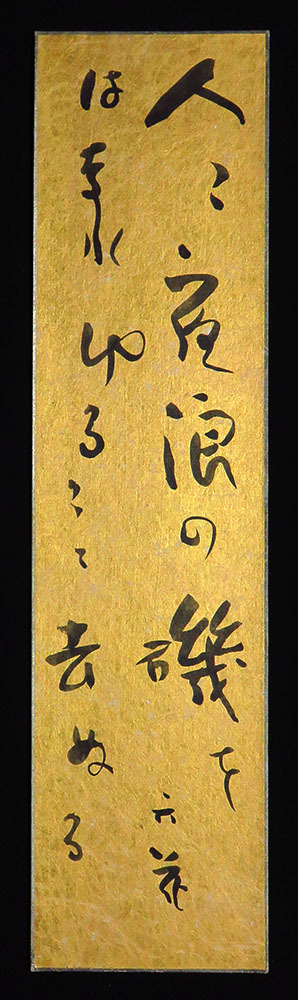 人ゝ夜浪の磯を
はなれゆるゝゝ去ぬる
六花